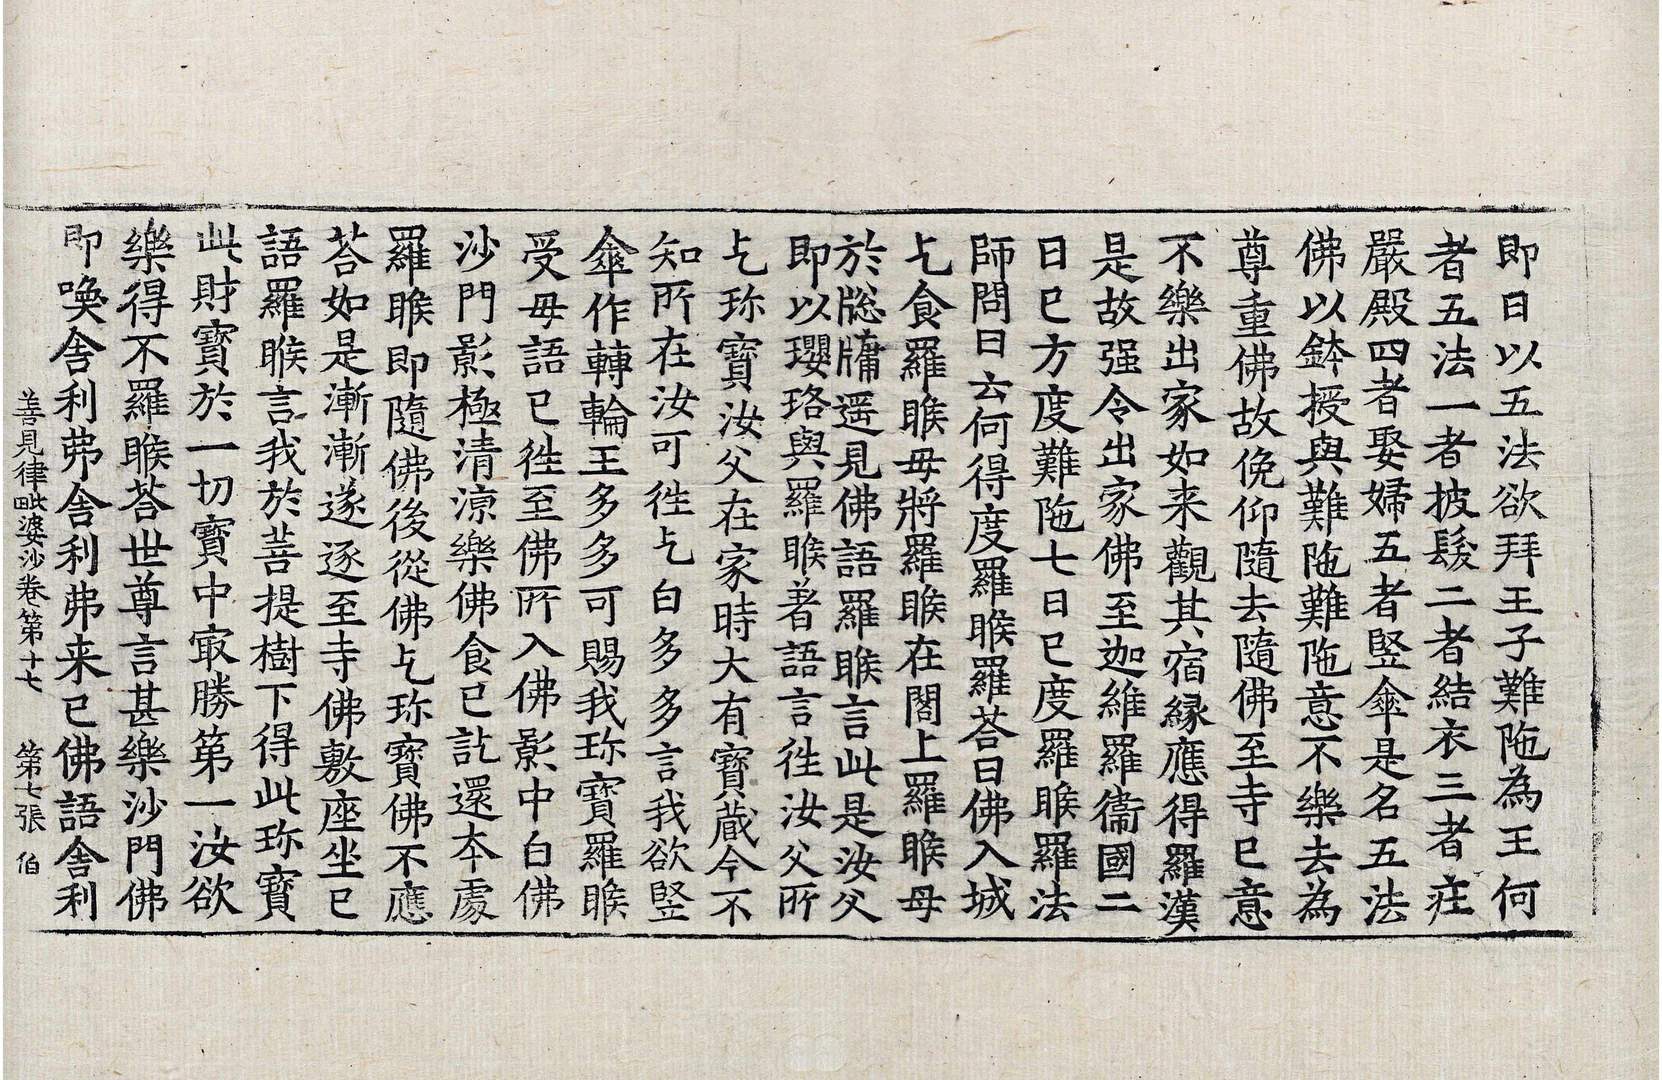 即日以五法欲拜王子難陁為王何
者五法一者披髮二者結衣三者庄
嚴殿四者娶婦五者竪傘是名五法
佛以鉢授與難陁難陁意不樂去為
尊重佛故俛仰隨去隨佛至寺已意
不樂出家如来觀其宿緣應得羅漢
是故强令出家佛至迦維羅衞國二
日已方度難陁七日已度羅睺羅法
師問曰云何得度羅睺羅荅曰佛入城
乞食羅睺母將羅睺在閣上羅睺母
於牎牗遥見佛語羅睺言此是汝父
即以瓔珞與羅睺著語言徃汝父所
乞珎寶汝父在家時大有寶蔵今不
知所在汝可徃乞白多多言我欲竪
傘作轉輪王多多可賜我珎寶羅睺
受母語已徃至佛所入佛影中白佛
沙門影極清涼樂佛食已訖還本處
羅睺即隨佛後從佛乞珎寶佛不應
荅如是漸漸遂逐至寺佛敷座坐已
語羅睺言我於菩提樹下得此珎寶
此財寶於一切寶中㝡勝第一汝欲
樂得不羅睺荅世尊言甚樂沙門佛
即喚舎利弗舎利弗来已佛語舎利
善見律毗婆沙卷第十七 第七張 伯